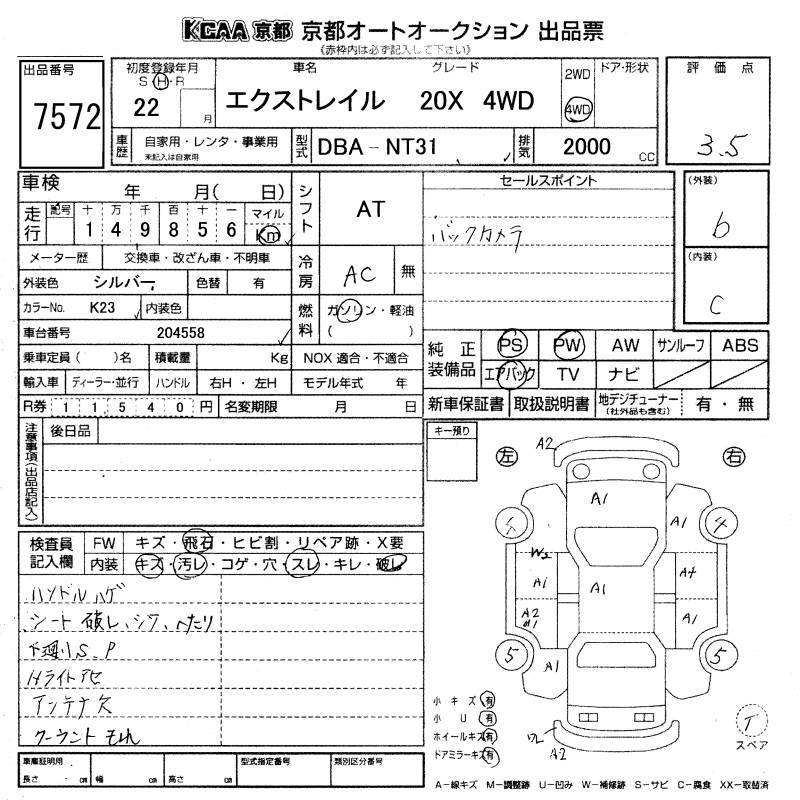 KCAA 京都 京都オートオークション 出品票
《赤枠内は必ず記入して下さい》
出品番号
7572
初度登録年月
S・H・R
22
月
車名
グレード
エクストレイル 20X 4WD
2WD
4WD
ドア・形状
評価点
3.5
車歴
自家用・レンタ・事業用
未記入は自家用
型式
DBA-NT31
排気
2000
CC
車検
年 月( 日)
走行
記号 十 万 千 百 十 一 マイル
1 4 9 8 5 6 Km
メーター歴
交換車・改ざん車・不明車
外装色
シルバー
色替
有
カラーNo.
K23
内装色
車台番号
204558
乗車定員( )名
積載量
Kg
輸入車
ディーラー・並行
ハンドル
右H・左H
R券
1 1 5 4 0 円
名変期限
月 日
シフト
AT
冷房
AC
無
燃料
ガソリン・軽油
( )
NOX 適合・不適合
モデル年式 年
セールスポイント
バックカメラ
(外装)
b
(内装)
C
純正装備品
PS PW AW サンルーフ ABS
エアバック TV ナビ
新車保証書
取扱説明書
地デジチューナー
(社外品も含む)
有・無
注意事項(出品店記入)
後日品
検査員記入欄
FW
キズ・飛石・ヒビ割・リペア跡・X要
内装
キズ・汚レ・コゲ・穴・スレ・キレ・破レ
ハンドルハゲ
シート 破レ、シワ、ヘたり
下廻りS.P
Hライトアセ
アンテナ欠
クーラントもれ
キー預り
左
右
A2
A1
A1
4
4
W2
A1
A1
A2
A1
5
5
A1
A2
小キズ 有
小U 有
ホイールキズ 有
ドアミラーキズ 有
T
スペア
車庫証明用
長さ ・ cm
幅 cm
高さ cm
型式指定番号
類別区分番号
A-線キズ M-調整跡 U-凹み W-補修跡 S-サビ C-腐食 XX-取替済